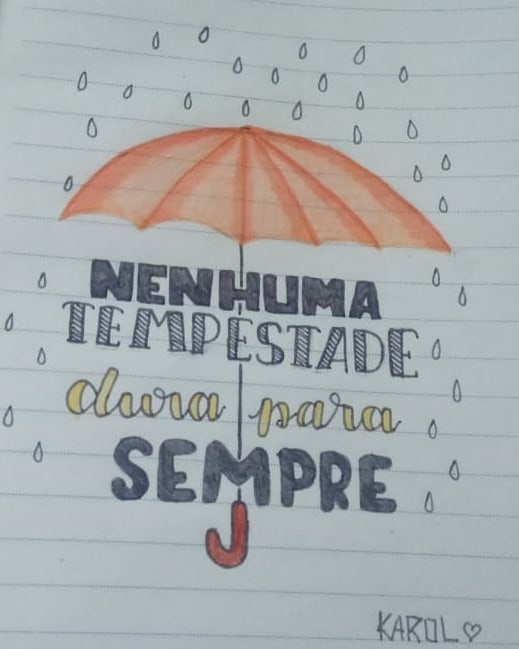 NENHUMA
TEMPESTADE
dura para
SEMPRE
KAROL♡